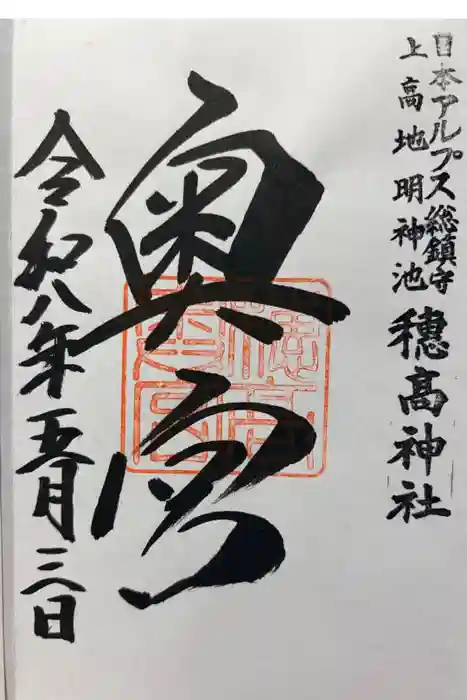 日本アルプス総鎮守
上高地明神池 穂高神社
奥宮
令和八年五月三日